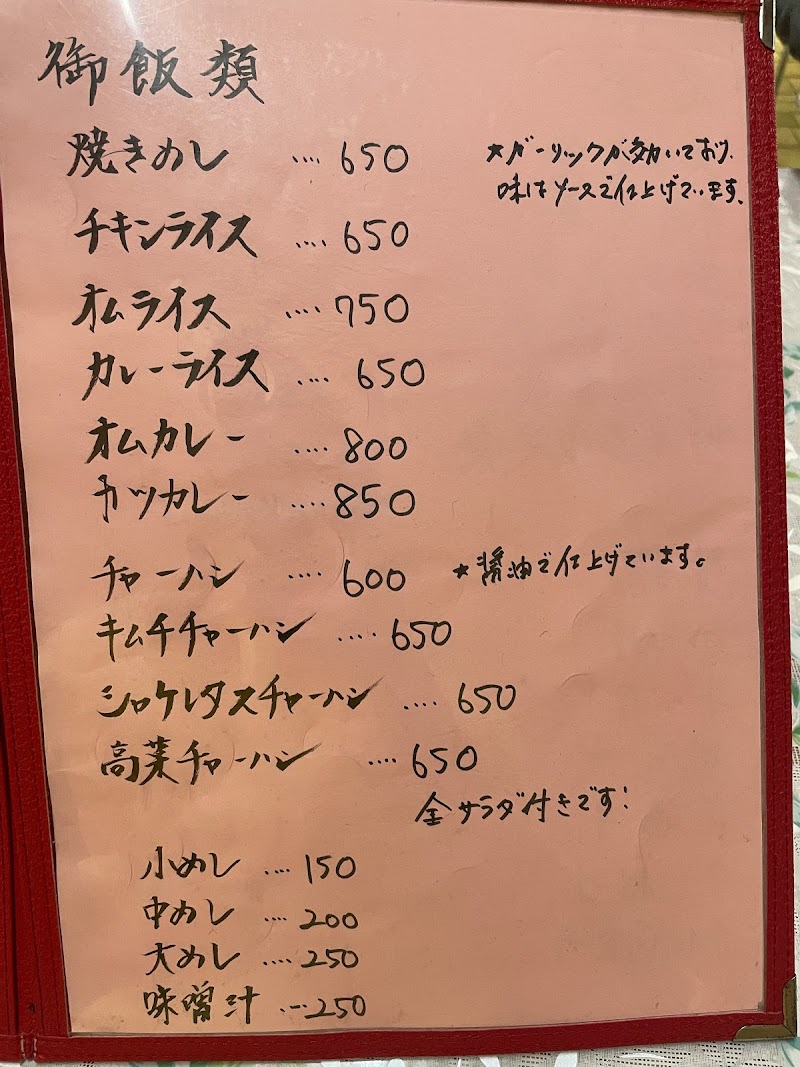 御飯類
焼きめし ‥‥ 650 ★ガーリックが効いており、
味はソースで仕上げています。
チキンライス ‥‥ 650
オムライス ‥‥ 750
カレーライス ‥‥ 650
オムカレー ‥‥ 800
カツカレー ‥‥ 850
チャーハン ‥‥ 600 ★醤油で仕上げています。
キムチチャーハン ‥‥ 650
シャケレタスチャーハン ‥‥ 650
高菜チャーハン ‥‥ 650
全サラダ付きです!
小めし ‥‥ 150
中めし ‥‥ 200
大めし ‥‥ 250
味噌汁 ‥‥ 250